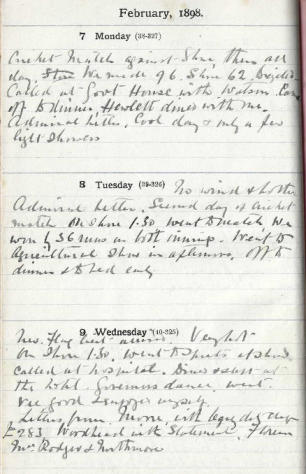 February, 1898.
7 Monday (38-327)
Cricket Match against Shore, there all
day. We made 96. Shore 62.
Called at Govt House with Watson
off to dinner. Hewlett dined with me.
Admiral better. Cool day & only a few
light showers
8 Tuesday (39-326) No wind & hotter
Admiral better. Second day of cricket
match. On shore 1.30 went to match We
won by 36 runs on both innings. Went to
Agricultural Show in afternoon. Off to
dinner & to bed early
9 Wednesday (40-325)
New Flag Lieut arrived. Very hot
On shore 1.30. went to Sports at
called at hospital. Dined & slept at
the hotel. Governors dance, went.
Vee good & enjoyed myself.
Letters from Moore, with
£283. Woodhead with Statement, Florence
Mrs Rodgers & Northmore